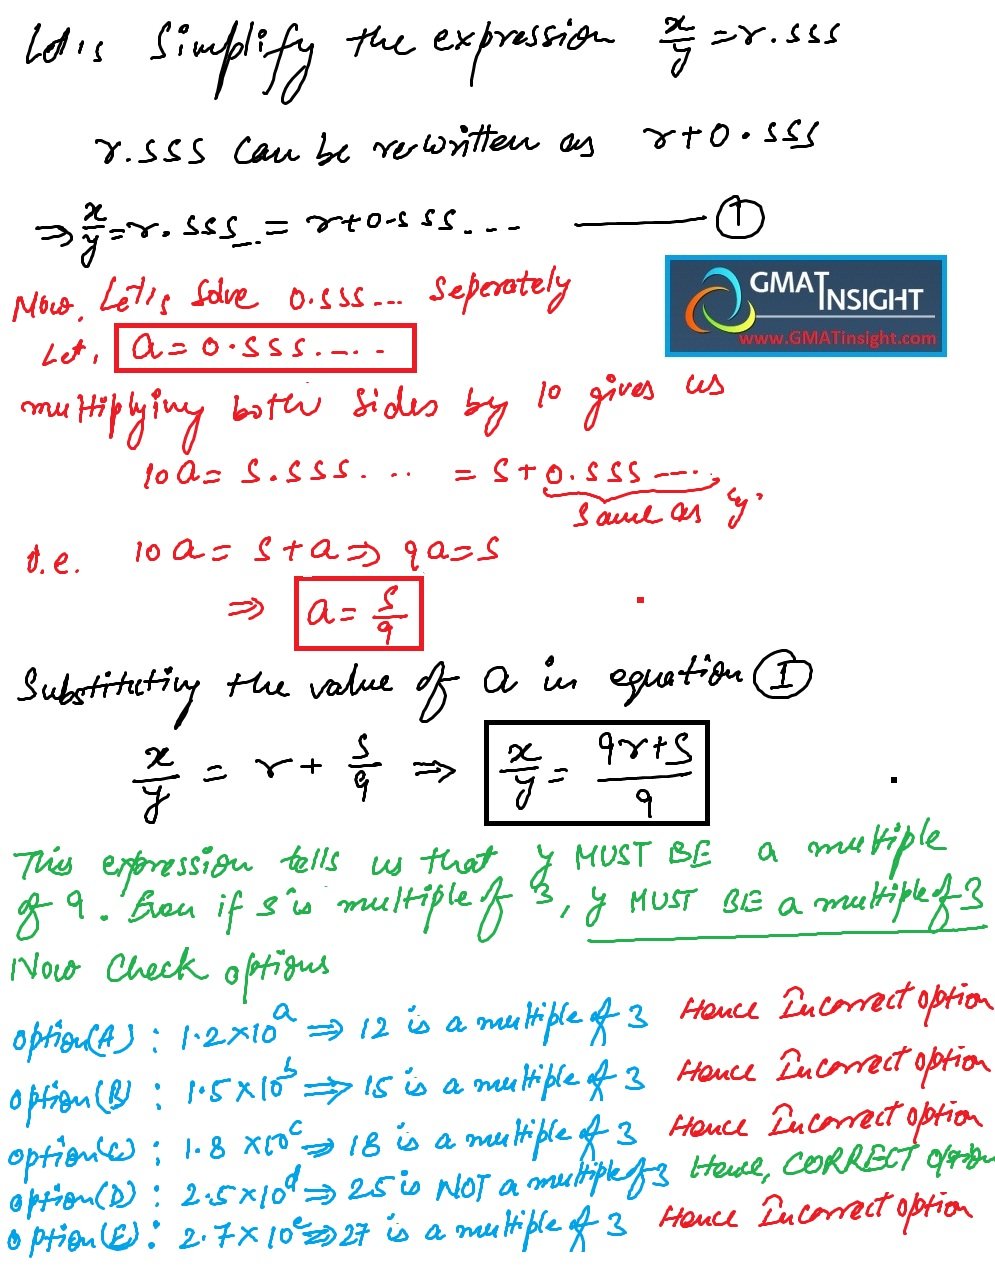 Let's Simplify the expression x/y = r.sss
r.sss can be rewritten as r+0.sss
⇒ x/y = r.sss... = r+0.sss... —— ①
Now, Let's Solve 0.sss... Seperately
Let, a = 0.sss.....
GMAT INSIGHT
www.GMATinsight.com
multiplying both sides by 10 gives us
10a = s.sss... = s+0.sss....
same as y.
i.e. 10a = s+a ⇒ 9a=s
⇒ a = s/9
Substituting the value of a in equation Ⓘ
x/y = r + s/9 ⇒ x/y = 9r+s/9
This expression tells us that y MUST BE a multiple
of 9. Even if s is multiple of 3, y MUST BE a multiple of 3
Now Check options
option(A) : 1.2×10^a ⇒ 12 is a multiple of 3 Hence Incorrect option
option(B) : 1.5×10^b ⇒ 15 is a multiple of 3 Hence Incorrect option
option(C) : 1.8×10^c ⇒ 18 is a multiple of 3 Hence Incorrect option
option(D) : 2.5×10^d ⇒ 25 is NOT a multiple of 3 Hence, CORRECT option
option(E) : 2.7×10^e ⇒ 27 is a multiple of 3 Hence Incorrect option